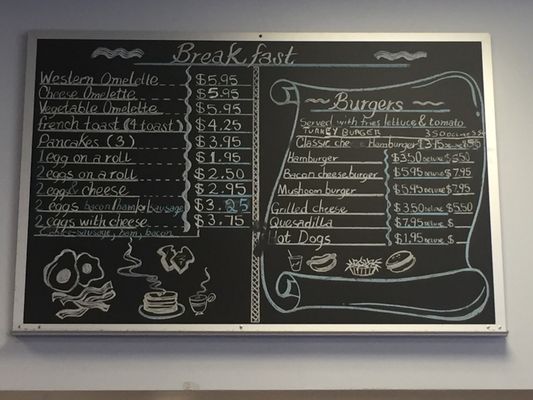 Breakfast
Western Omelette $5.95
Cheese Omelette $5.95
Vegetable Omelette $5.95
french toast (4 toast) $4.25
Pancakes (3) $3.95
1 egg on a roll $1.95
2 eggs on a roll $2.50
2 egg & cheese $2.95
2 eggs bacon/ham/or sausage $3.25
2 eggs with cheese $3.75
sausage, ham, bacon
Burgers
Served with fries lettuce & tomato
TURKEY BURGER 3.50 DELUXE
Classic cheese Hamburger $3.95 DELUXE
Hamburger $3.50 DELUXE $5.50
Bacon cheeseburger $5.95 DELUXE $7.95
Mushoom burger $5.95 DELUXE $7.95
Grilled cheese $3.50 DELUXE $5.50
Quesadilla $7.95 DELUXE $
Hot Dogs $1.95 DELUXE $